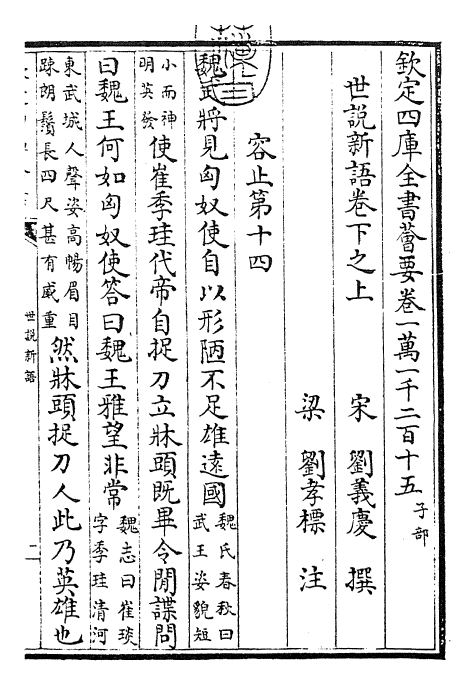 欽定四庫全書薈要卷一萬一千二百十五 子部
世說新語卷下之上
宋 劉義慶 撰
梁 劉孝標 注
容止第十四
魏武將見匈奴使自以形陋不足雄遠國 魏氏春秋曰
武王姿貌短
小而神
明英發 使崔季珪代帝自捉刀立牀頭既畢令閒諜問
曰魏王何如匈奴使答曰魏王雅望非常 魏志曰崔琰
字季珪清河
東武城人聲姿高暢眉目
疎朗鬚長四尺甚有威重 然牀頭捉刀人此乃英雄也
世說新語
二